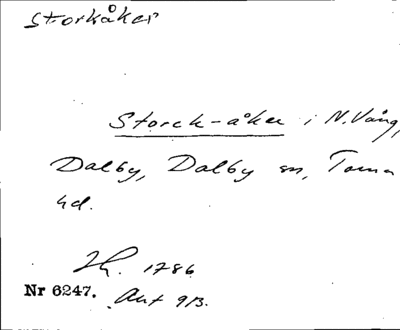 Storkåker
Storck-åker i N. Vång,
Dalby, Dalby sn, Torna
hd.
1786
Nr 6247. Akt 913.